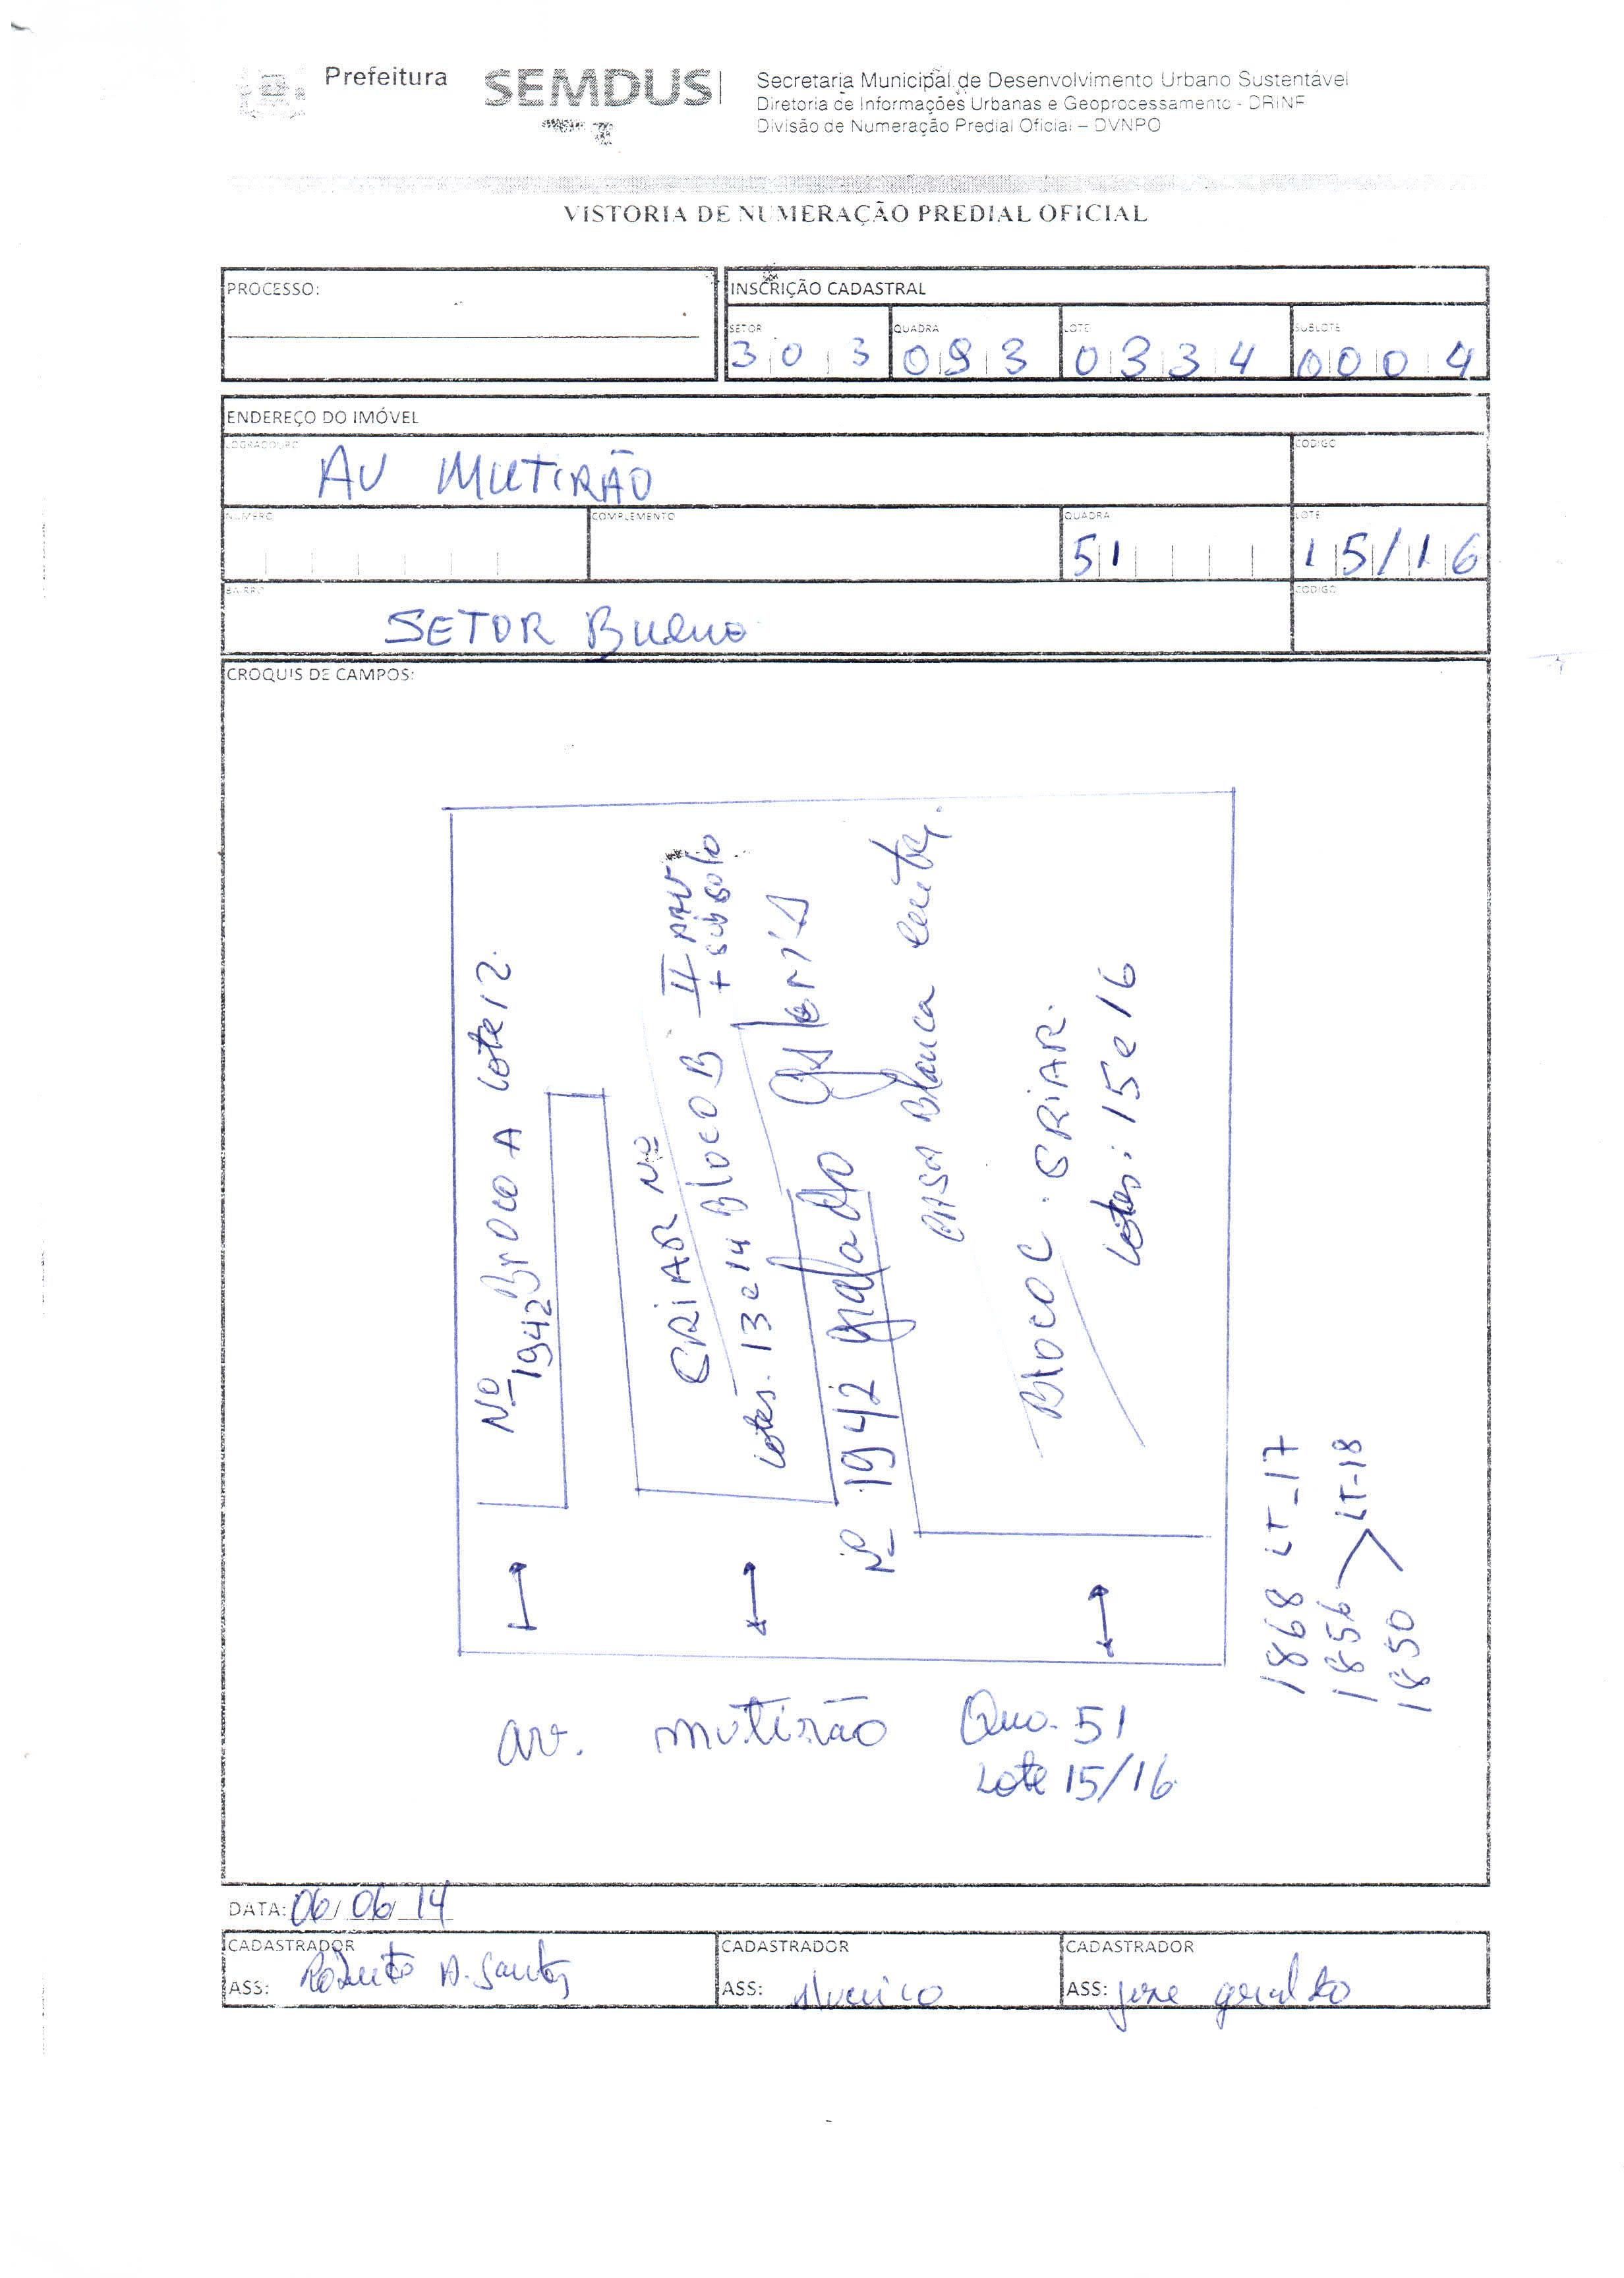 Prefeitura
SEMDUS
Secretaria Municipal de Desenvolvimento Urbano Sustentável
Diretoria de Informações Urbanas e Geoprocessamento - DRINF
Divisão de Numeração Predial Oficial – DVNPO
VISTORIA DE NUMERAÇÃO PREDIAL OFICIAL
PROCESSO:
INSCRIÇÃO CADASTRAL
SETOR QUADRA LOTE SUBLOTE
303 093 0334 0004
ENDEREÇO DO IMÓVEL
LOGRADOURO CODIGO
AV MUTIRÃO
NUMERO COMPLEMENTO QUADRA LOTE
51 15/16
BAIRRO CODIGO
SETOR Bueno
CROQUIS DE CAMPOS:
Nº 1942 Bloco A Lote 12.
CRIAR Nº
Bloco B II PAV
+ subsolo
Lotes. 13 e 14
Galeria
Nº 1942 gradado
CASA Blanca
Bloco C. CRIAR.
Lotes: 15 e 16
1868 LT-17
1856 > LT-18
1850
av. mutirão Qua. 51
Lote 15/16.
DATA: 06/06/14
CADASTRADOR CADASTRADOR CADASTRADOR
ASS: Roberto A. Santos ASS: ASS: jose geraldo